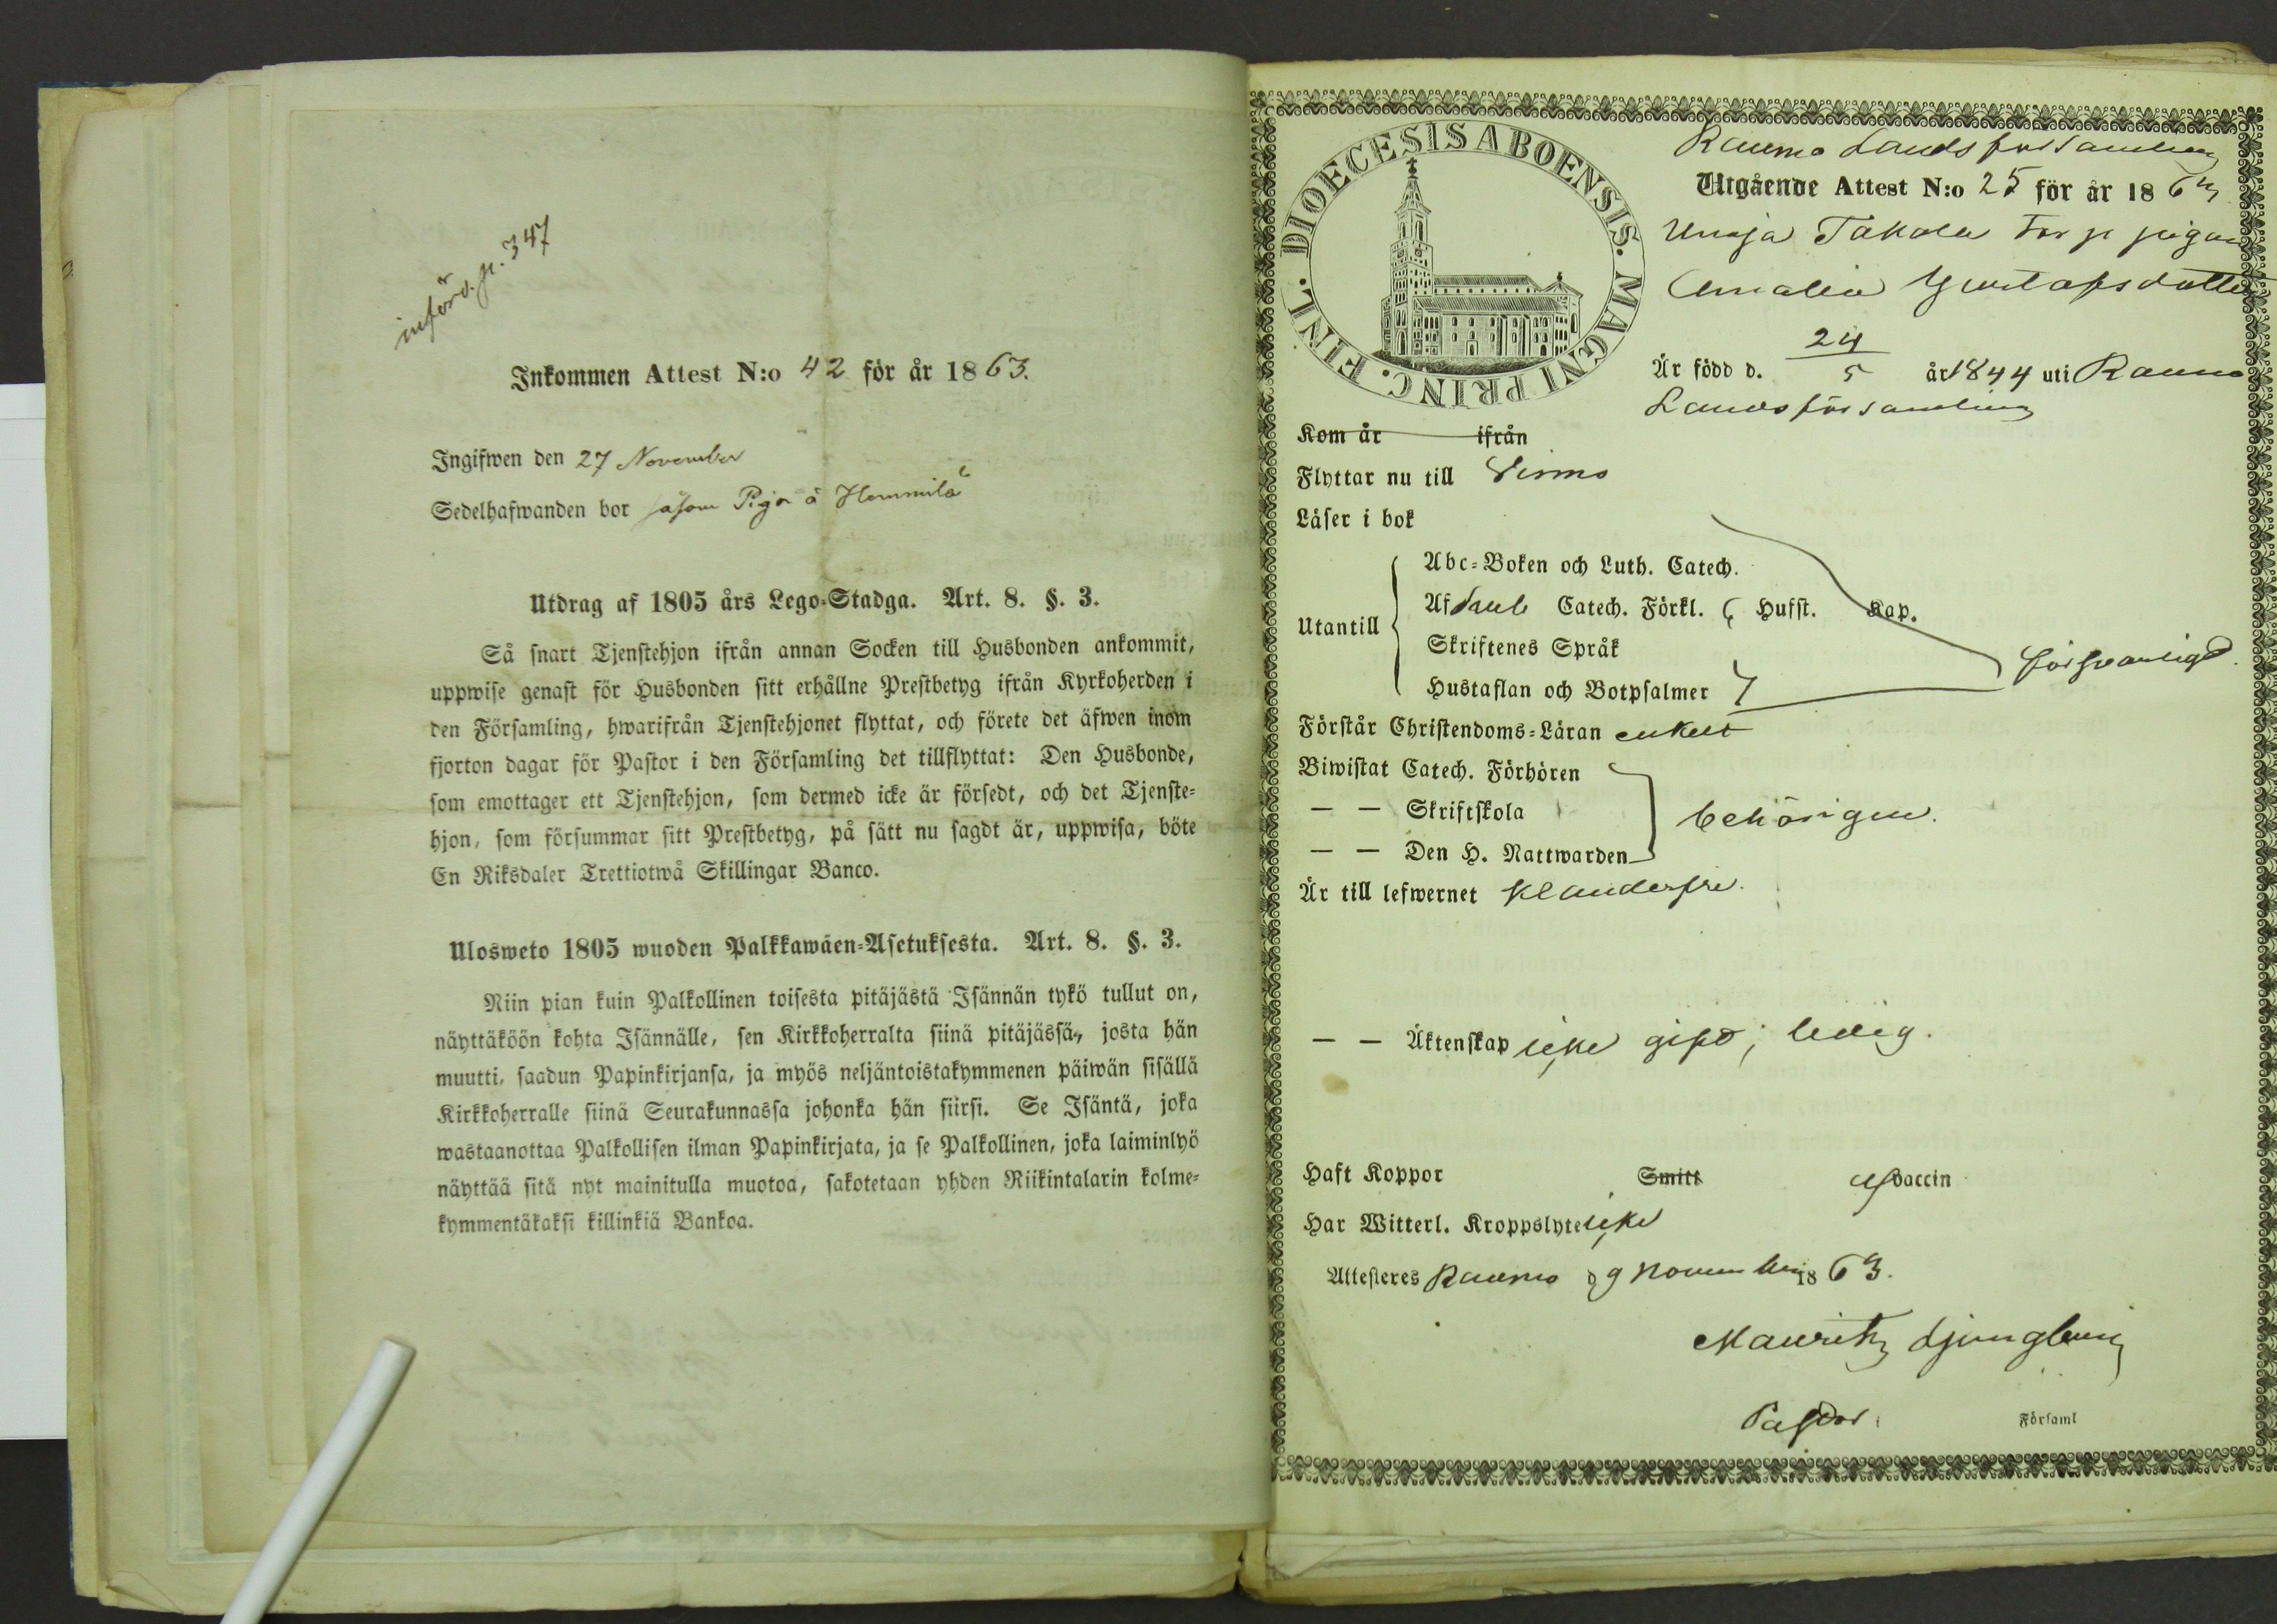 införd. p. 347
Inkommen Attest N:o 42 för år 1863.
Ingifwen den 27 November
Sedelhafwanden bor såsom Piga å Hemmilä
Utdrag af 1805 års Lego-Stadga. Art. 8. §. 3.
Så snart Tjenstehjon ifrån annan Socken till Husbonden ankommit,
uppwise genast för Husbonden sitt erhållne Prestbetyg ifrån Kyrkoherden i
den Församling, hwarifrån Tjenstehjonet flyttat, och förete det äfwen inom
fjorton dagar för Pastor i den Församling det tillflyttat: Den Husbonde,
som emottager ett Tjenstehjon, som dermed icke är försedt, och det Tjenste-
hjon, som försummar sitt Prestbetyg, på sätt nu sagdt är, uppwisa, böte
En Riksdaler Trettiotwå Skillingar Banco.
Ulosweto 1805 wuoden Palkkawäen-Asetuksesta. Art. 8. §. 3.
Niin pian kuin Palkollinen toisesta pitäjästä Isännän tykö tullut on,
näyttäköön kohta Isännälle, sen Kirkkoherralta siinä pitäjässä, josta hän
muutti, saadun Papinkirjansa, ja myös neljäntoistakymmenen päiwän sisällä
Kirkkoherralle siinä Seurakunnassa johonka hän siirsi. Se Isäntä, joka
wastaanottaa Palkollisen ilman Papinkirjata, ja se Palkollinen, joka laiminlyö
näyttää sitä nyt mainitulla muotoa, sakotetaan yhden Riikintalarin kolme-
kymmentäkaksi killinkiä Bankoa.
DIOECESIS ABOENSIS. MAGNI PRINC. FINL.
Raumo Landsförsamling
Utgående Attest N:o 25 för år 1863
Unaja Takala torp pigan
Amalia Gustafsdotter
Är född d. 24/5 år 1844 uti Raumo
Landsförsamling
Kom år ifrån
Flyttar nu till Virmo
Läser i bok
Utantill
Abc-Boken och Luth. Catech.
Af Catech. Förkl. Husst. Kap.
Skriftenes Språk
Hustaflan och Botpsalmer
försvarligt.
Förstår Christendoms-Läran enkelt
Biwistat Catech. Förhören
— — Skriftskola
behörigen.
— — Den H. Nattwarden
Är till lefwernet klanderfri.
— — Äktenskap icke gift; ledig.
Haft Koppor Smitt af Vaccin
Har Witterl. Kroppslyte icke
Attesteres Raumo d 9 November 1863.
Mauritz Ljungberg
Pastor i Församl